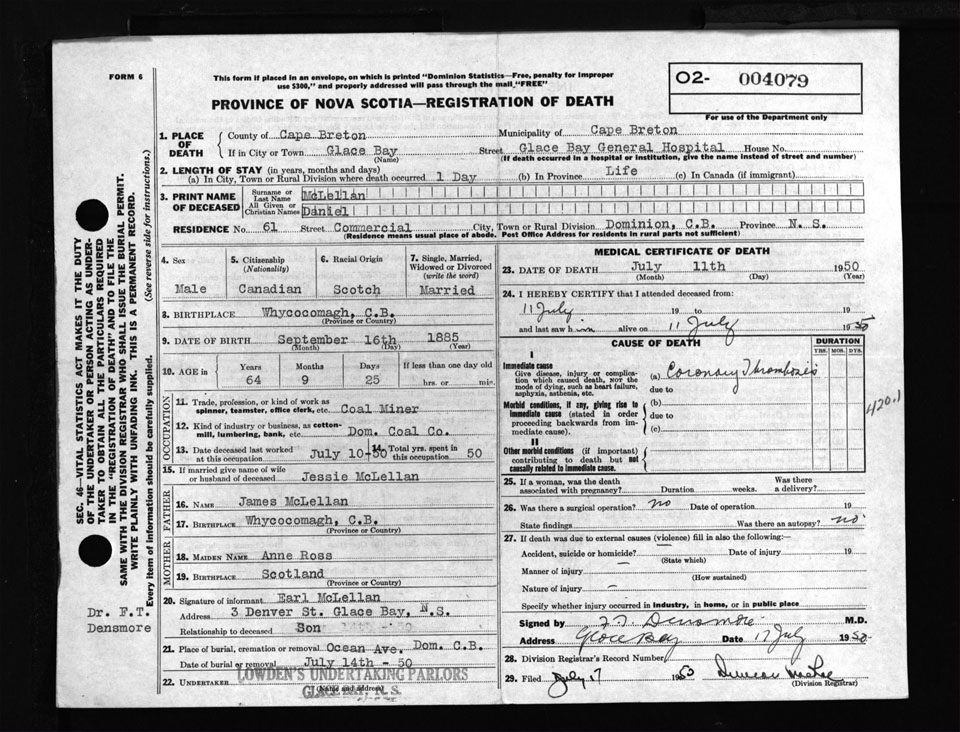 FORM 6
This form if placed in an envelope, on which is printed "Dominion Statistics—Free, penalty for improper
use $300," and properly addressed will pass through the mail "FREE"
O2- 004079
For use of the Department only
PROVINCE OF NOVA SCOTIA—REGISTRATION OF DEATH
1. PLACE OF DEATH
County of Cape Breton Municipality of Cape Breton
If in City or Town Glace Bay Street Glace Bay General Hospital House No.
(Name) (If death occurred in a hospital or institution, give the name instead of street and number)
2. LENGTH OF STAY (in years, months and days)
(a) In City, Town or Rural Division where death occurred 1 Day (b) In Province Life (c) In Canada (if immigrant)
3. PRINT NAME OF DECEASED
Surname or Last Name McLellan
All Given or Christian Names Daniel
RESIDENCE No. 61 Street Commercial City, Town or Rural Division Dominion, C.B. Province N. S.
(Residence means usual place of abode. Post Office Address for residents in rural parts not sufficient)
4. Sex 5. Citizenship (Nationality) 6. Racial Origin 7. Single, Married, Widowed or Divorced (write the word)
Male Canadian Scotch Married
8. BIRTHPLACE Whycocomagh, C.B.
(Province or Country)
9. DATE OF BIRTH September 16th 1885
(Month) (Day) (Year)
10. AGE in Years Months Days If less than one day old
64 9 25 hrs. or min.
OCCUPATION
11. Trade, profession, or kind of work as
spinner, teamster, office clerk, etc. Coal Miner
12. Kind of industry or business, as cotton-
mill, lumbering, bank, etc. Dom. Coal Co.
13. Date deceased last worked at this occupation July 10-50 14. Total yrs. spent in this occupation 50
15. If married give name of wife
or husband of deceased Jessie McLellan
FATHER
16. NAME James McLellan
17. BIRTHPLACE Whycocomagh, C.B.
(Province or Country)
MOTHER
18. MAIDEN NAME Anne Ross
19. BIRTHPLACE Scotland
(Province or Country)
20. Signature of informant Earl McLellan
Address 3 Denver St. Glace Bay, N.S.
Relationship to deceased Son
21. Place of burial, cremation or removal Ocean Ave. Dom. C.B.
Date of burial or removal July 14th - 50
22. UNDERTAKER LOWDEN'S UNDERTAKING PARLORS
(Name and Address)
GLACE BAY, N. S.
MEDICAL CERTIFICATE OF DEATH
23. DATE OF DEATH July 11th 1950
(Month) (Day) (Year)
24. I HEREBY CERTIFY that I attended deceased from:
11 July 19 to 19
and last saw him alive on 11 July 1950
CAUSE OF DEATH DURATION
YRS. MOS. DYS.
I
Immediate cause
Give disease, injury or complication which caused death, NOT the mode of dying, such as heart failure, asphyxia, asthenia, etc.
(a) Coronary Thrombosis
due to
Morbid conditions, if any, giving rise to immediate cause (stated in order proceeding backwards from immediate cause).
(b)
due to
(c)
420.1
II
Other morbid conditions (if important) contributing to death but not causally related to immediate cause.
25. If a woman, was the death associated with pregnancy? Duration weeks. Was there a delivery?
26. Was there a surgical operation? no Date of operation 19
State findings Was there an autopsy? no
27. If death was due to external causes (violence) fill in also the following:—
Accident, suicide or homicide? — Date of injury 19
(State which)
Manner of injury
(How sustained)
Nature of injury —
Specify whether injury occurred in industry, in home, or in public place
Signed by F T Densmore M.D.
Address Glace Bay Date 17 July 1950
28. Division Registrar's Record Number
29. Filed July 17 19 Duncan MacRae
(Division Registrar)
SEC. 46—VITAL STATISTICS ACT MAKES IT THE DUTY
OF THE UNDERTAKER OR PERSON ACTING AS UNDER-
TAKER TO OBTAIN ALL THE PARTICULARS REQUIRED
IN THE "REGISTRATION OF DEATH" AND TO FILE THE
SAME WITH THE DIVISION REGISTRAR WHO SHALL ISSUE THE BURIAL PERMIT.
WRITE PLAINLY WITH UNFADING INK. THIS IS A PERMANENT RECORD.
Every item of information should be carefully supplied. (See reverse side for instructions.)
Dr. F.T.
Densmore